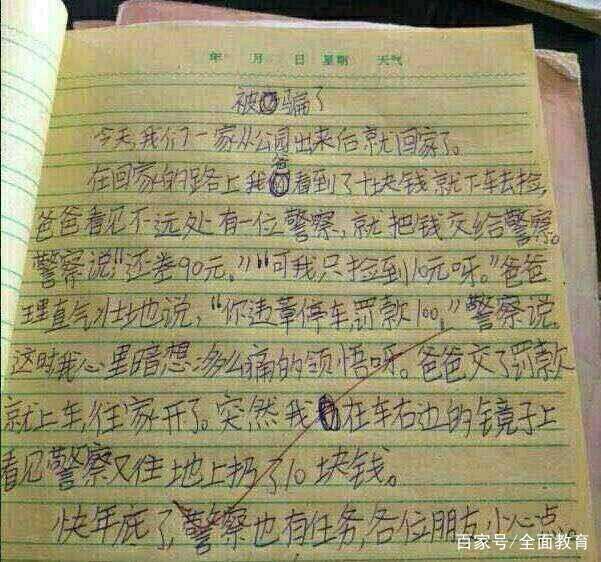 年 月 日 星期 天气
被骗了
今天我们一家从公园出来后就回家了。
在回家的路上我爸看到了十块钱就下车去捡,
爸爸看见不远处有一位警察,就把钱交给警察。
警察说“还差90元,”“可我只捡到10元呀。”爸爸
理直气壮地说,“你违章停车,罚款100,”警察说。
这时我心里暗想:多么痛的领悟呀。爸爸交了罚款
就上车,往家开了。突然我在车右边的镜子上
看见警察又往地上扔了10块钱。
快年底了,警察也有任务,各位朋友,小心点
百家号/全面教育